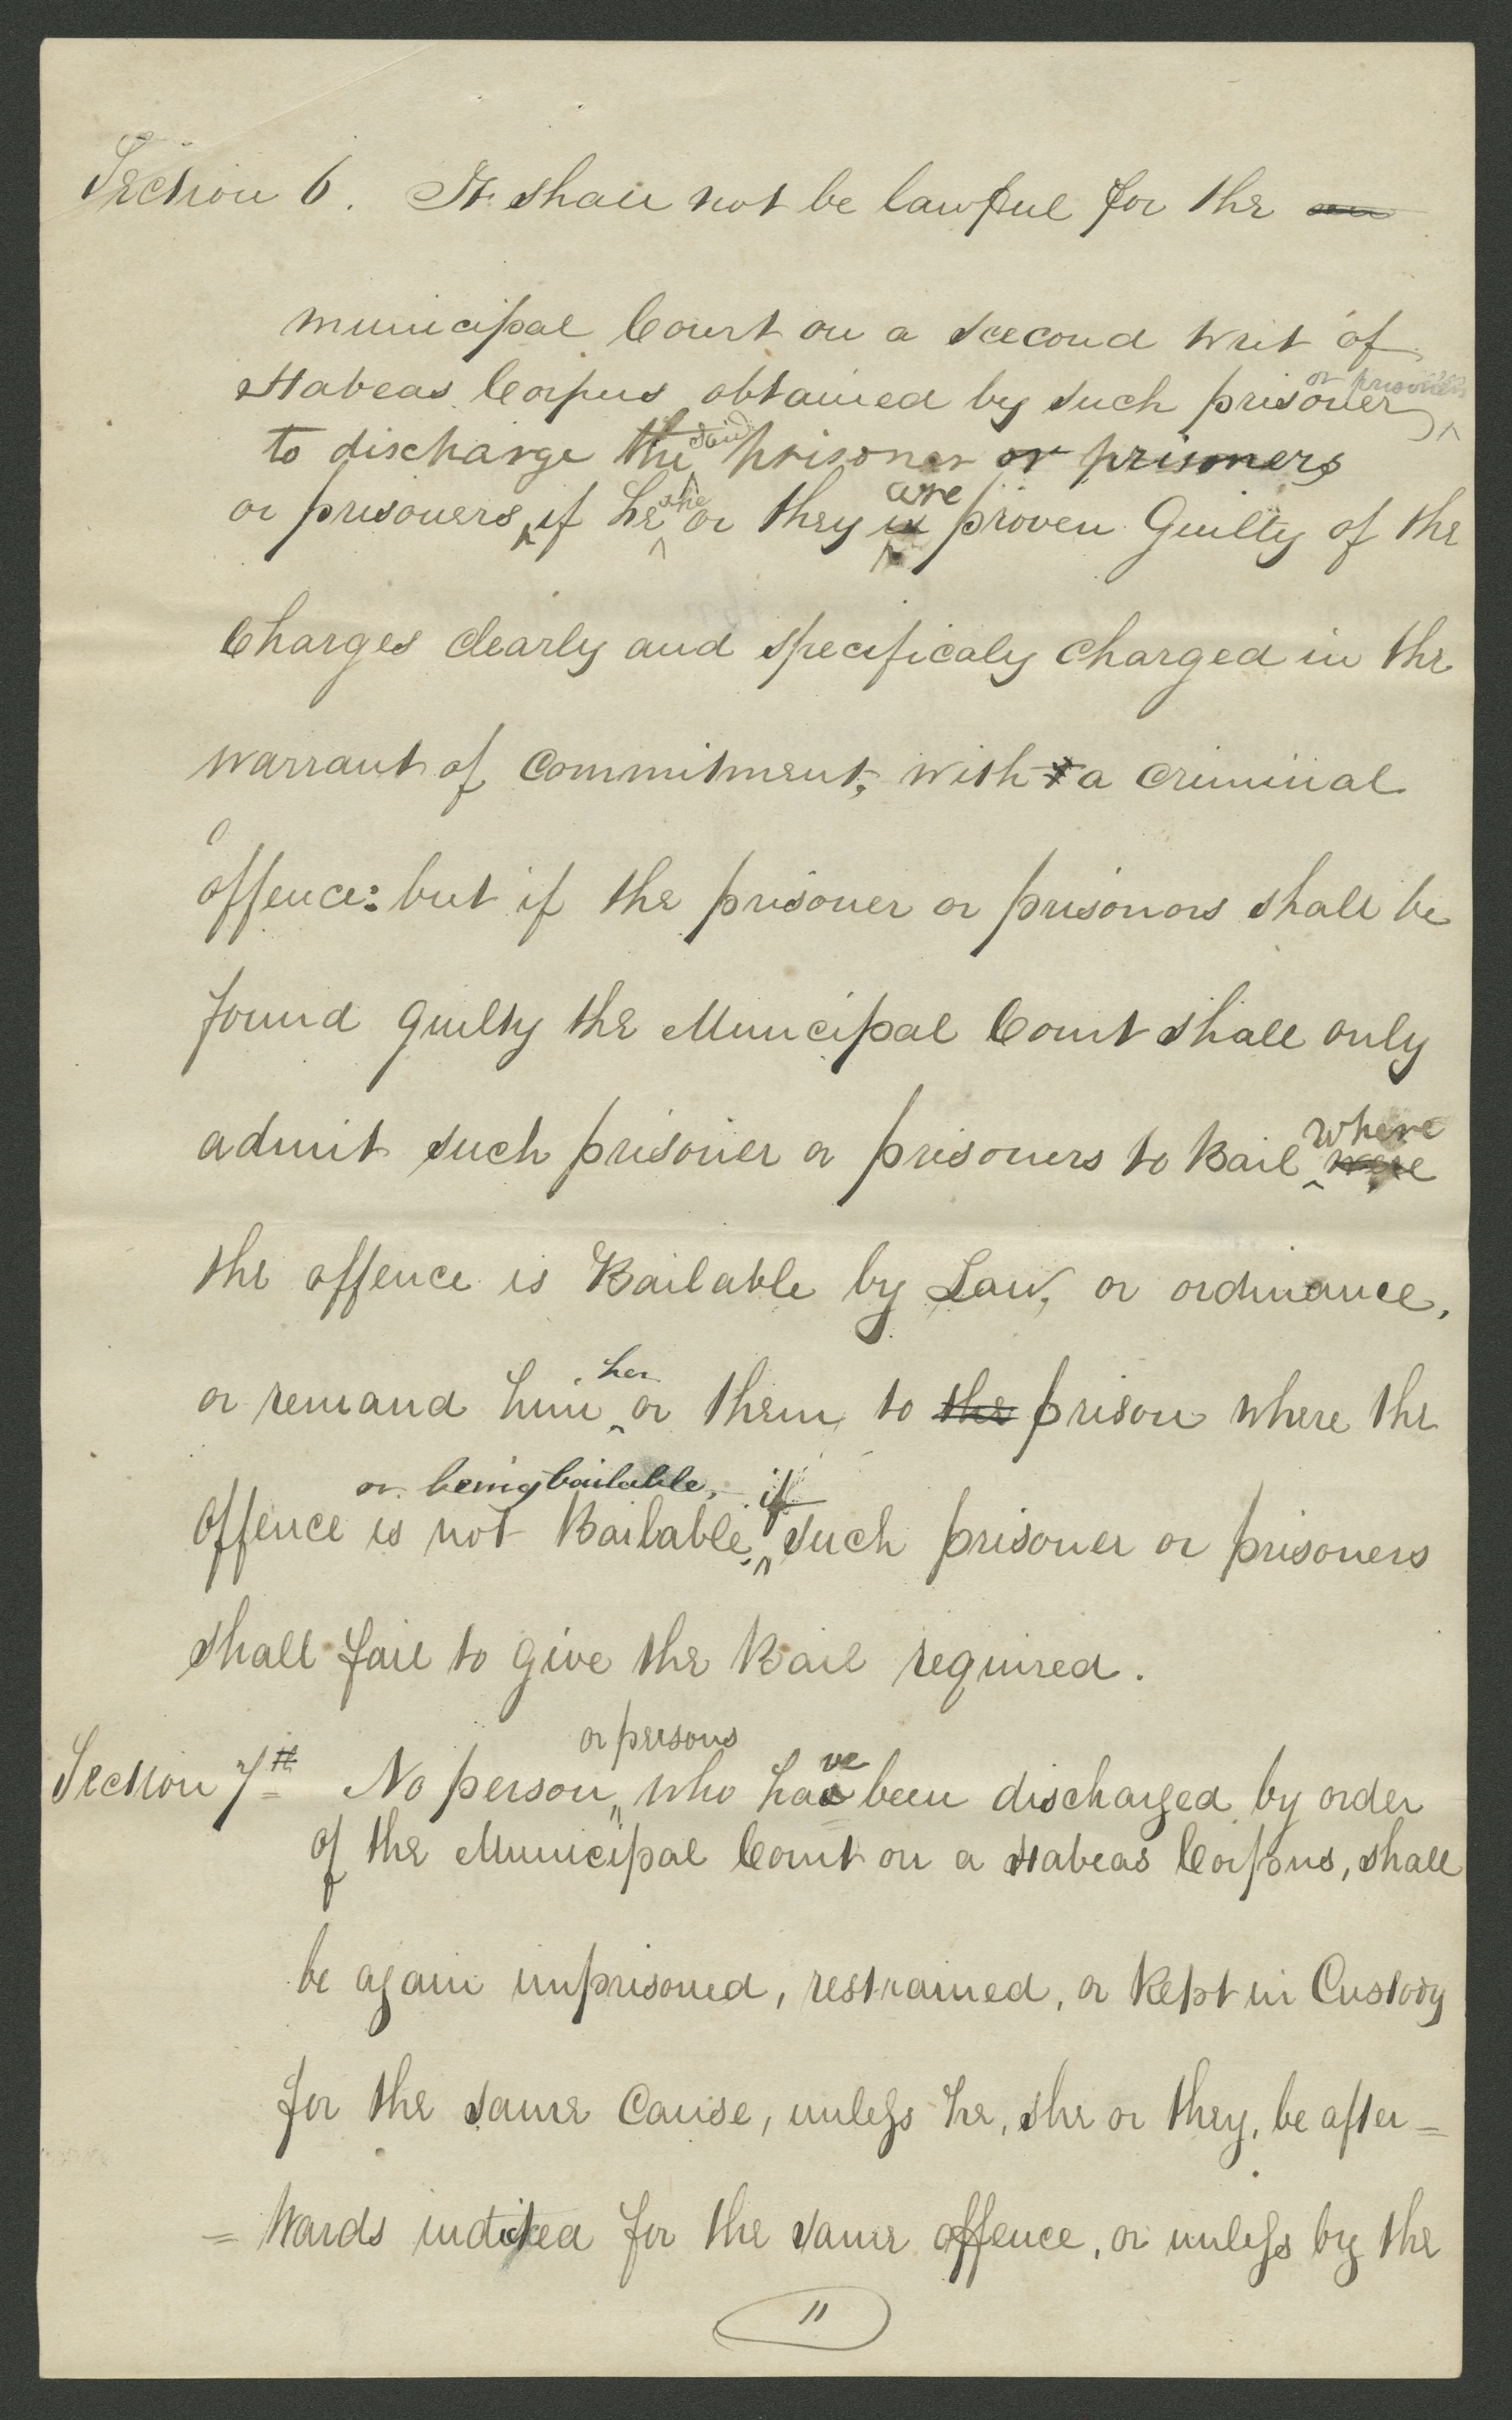 Section 6. It shall not be lawful for the
municipal Court on a scecond writ of
or prisoners
Habeas Corpus obtained by such prisoner
said
to discharge the prisoner or prisoners
she are
or prisoners, if he or they is proven Guilty of the
Charges clearly and specificaly charged in the
warrant of commitment, with a criminal
offence: but if the prisoner or prisonors shall be
found guilty the Municipal Court shall only
where
admit such prisoner or prisoners to Bail were
the offence is Bailable by Law, or ordinance,
her
or remand him or them to the prison where the
or being bailable, if
offence is not Bailable, such prisoner or prisoners
shall fail to give the Bail required.
or persons
ve
Section 7th No person who has been discharged by order
of the Municipal Court on a Habeas Corpus, shall
be again imprisoned, restrained, or kept in Custody
for the same Cause, unless he, she or they, be after=
=wards indicted for the same offence, or unless by the
11